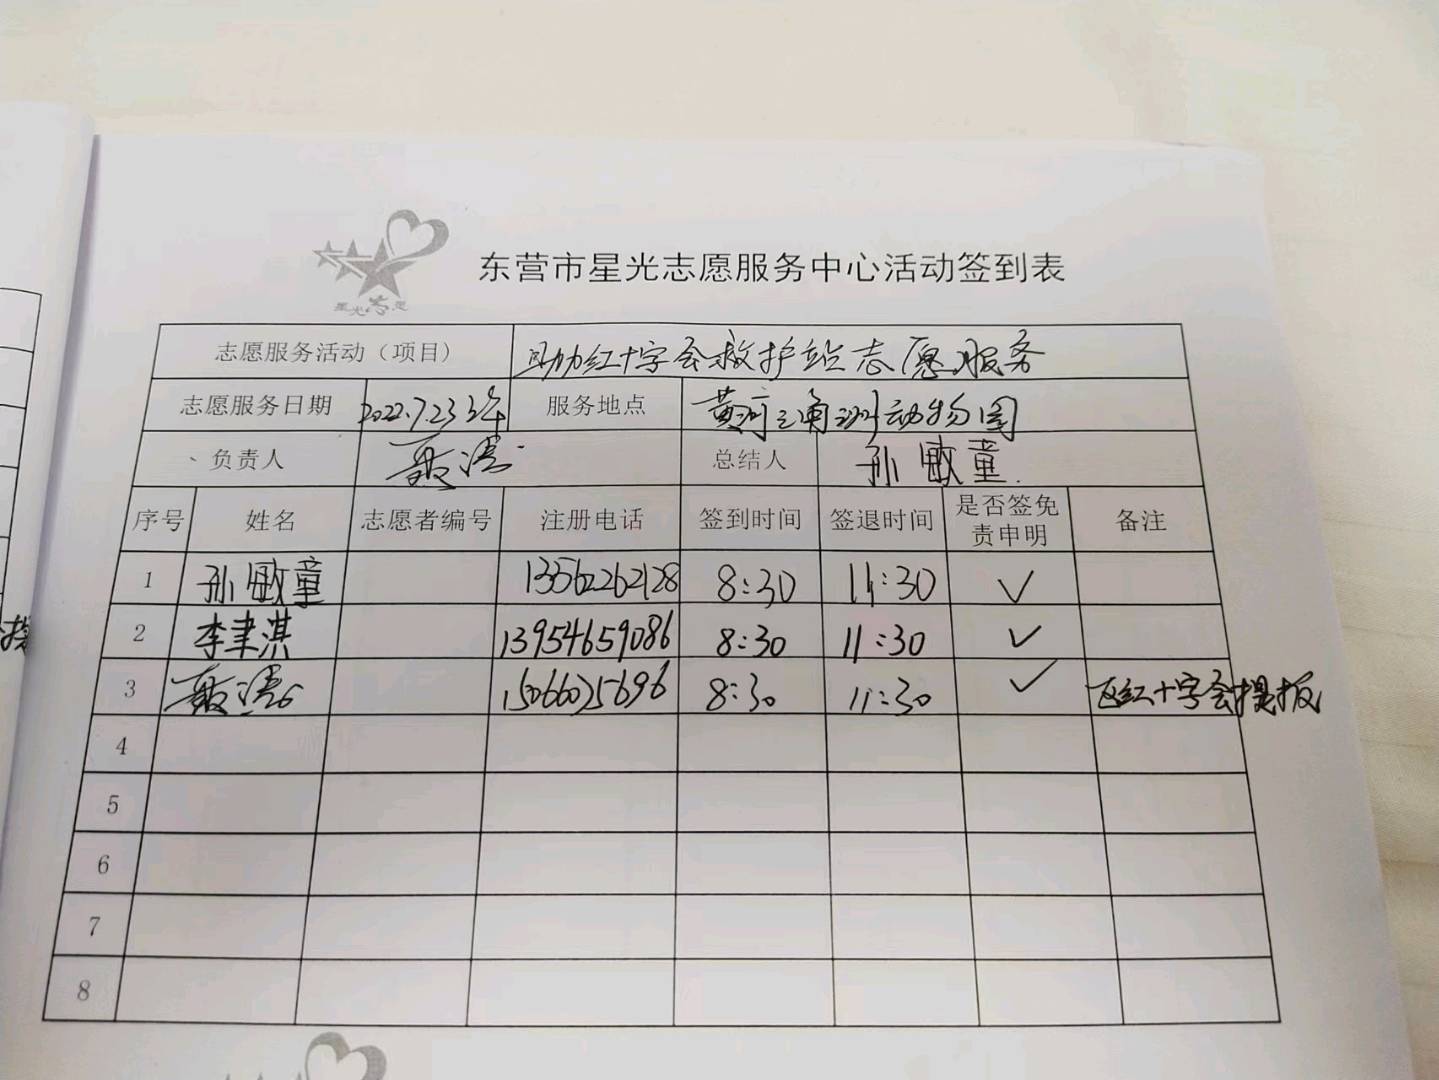 星光志愿
东营市星光志愿服务中心活动签到表
志愿服务活动（项目） 助力红十字会救护站志愿服务
志愿服务日期 2022.7.23 服务地点 黄河三角洲动物园
负责人 聂涛 总结人 孙敏童
序号 姓名 志愿者编号 注册电话 签到时间 签退时间 是否签免责申明 备注
1 孙敏童 13562262128 8:30 11:30 ✓
2 李聿淇 13954659086 8:30 11:30 ✓
3 15066035696 8:30 11:30 ✓ 区红十字会提报
4
5
6
7
8